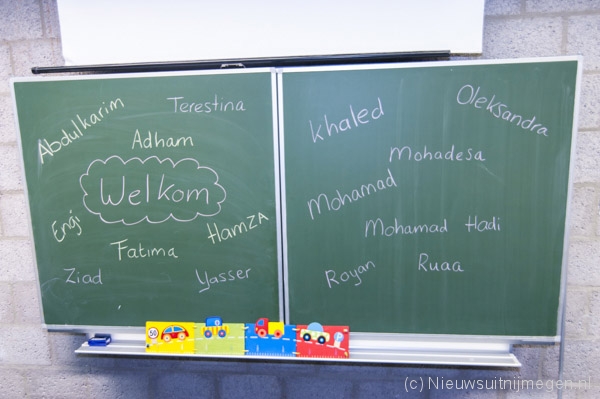 Abdulkarim
Terestina
Adham
Welkom
Engi
Hamza
Fatima
Ziad
Yasser
khaled
Oleksandra
Mohadesa
Mohamad
Mohamad Hadi
Royan
Ruaa
50
(c) Nieuwsuitnijmegen.nl